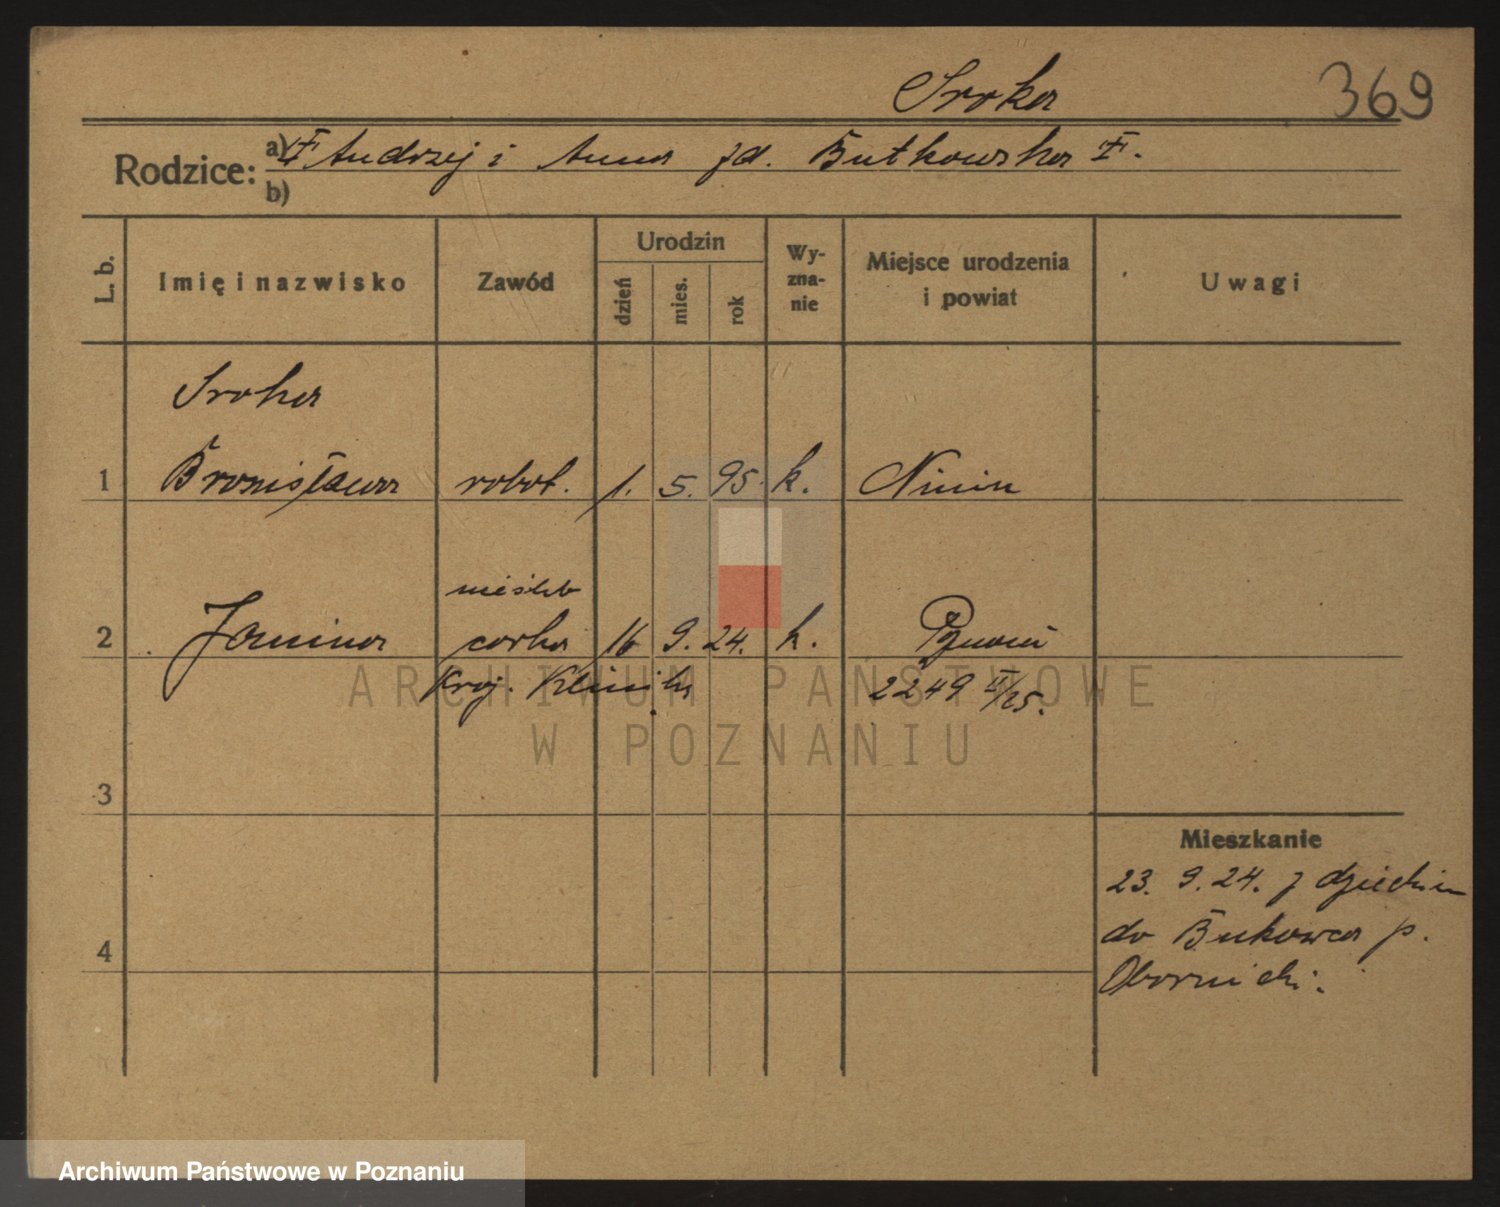 Sroka
369
Rodzice:
a) Andrzej i Anna zd. Butkowska
b)
L. b.
Imię i nazwisko
Zawód
Urodzin
dzień
mies.
rok
Wy-
zna-
nie
Miejsce urodzenia
i powiat
Uwagi
Sroka
1 Bronisława robot. 1. 5. 95. k. Ninin
nieślub
2 Janina córka 16 9. 24. k. Poznań
Kroj. Klinika 2249 II/25.
3
4
Mieszkanie
23. 9. 24. z dzieckiem
do Bukowca p.
Obornicki.
ARCHIWUM PAŃSTWOWE
W POZNANIU
Archiwum Państwowe w Poznaniu